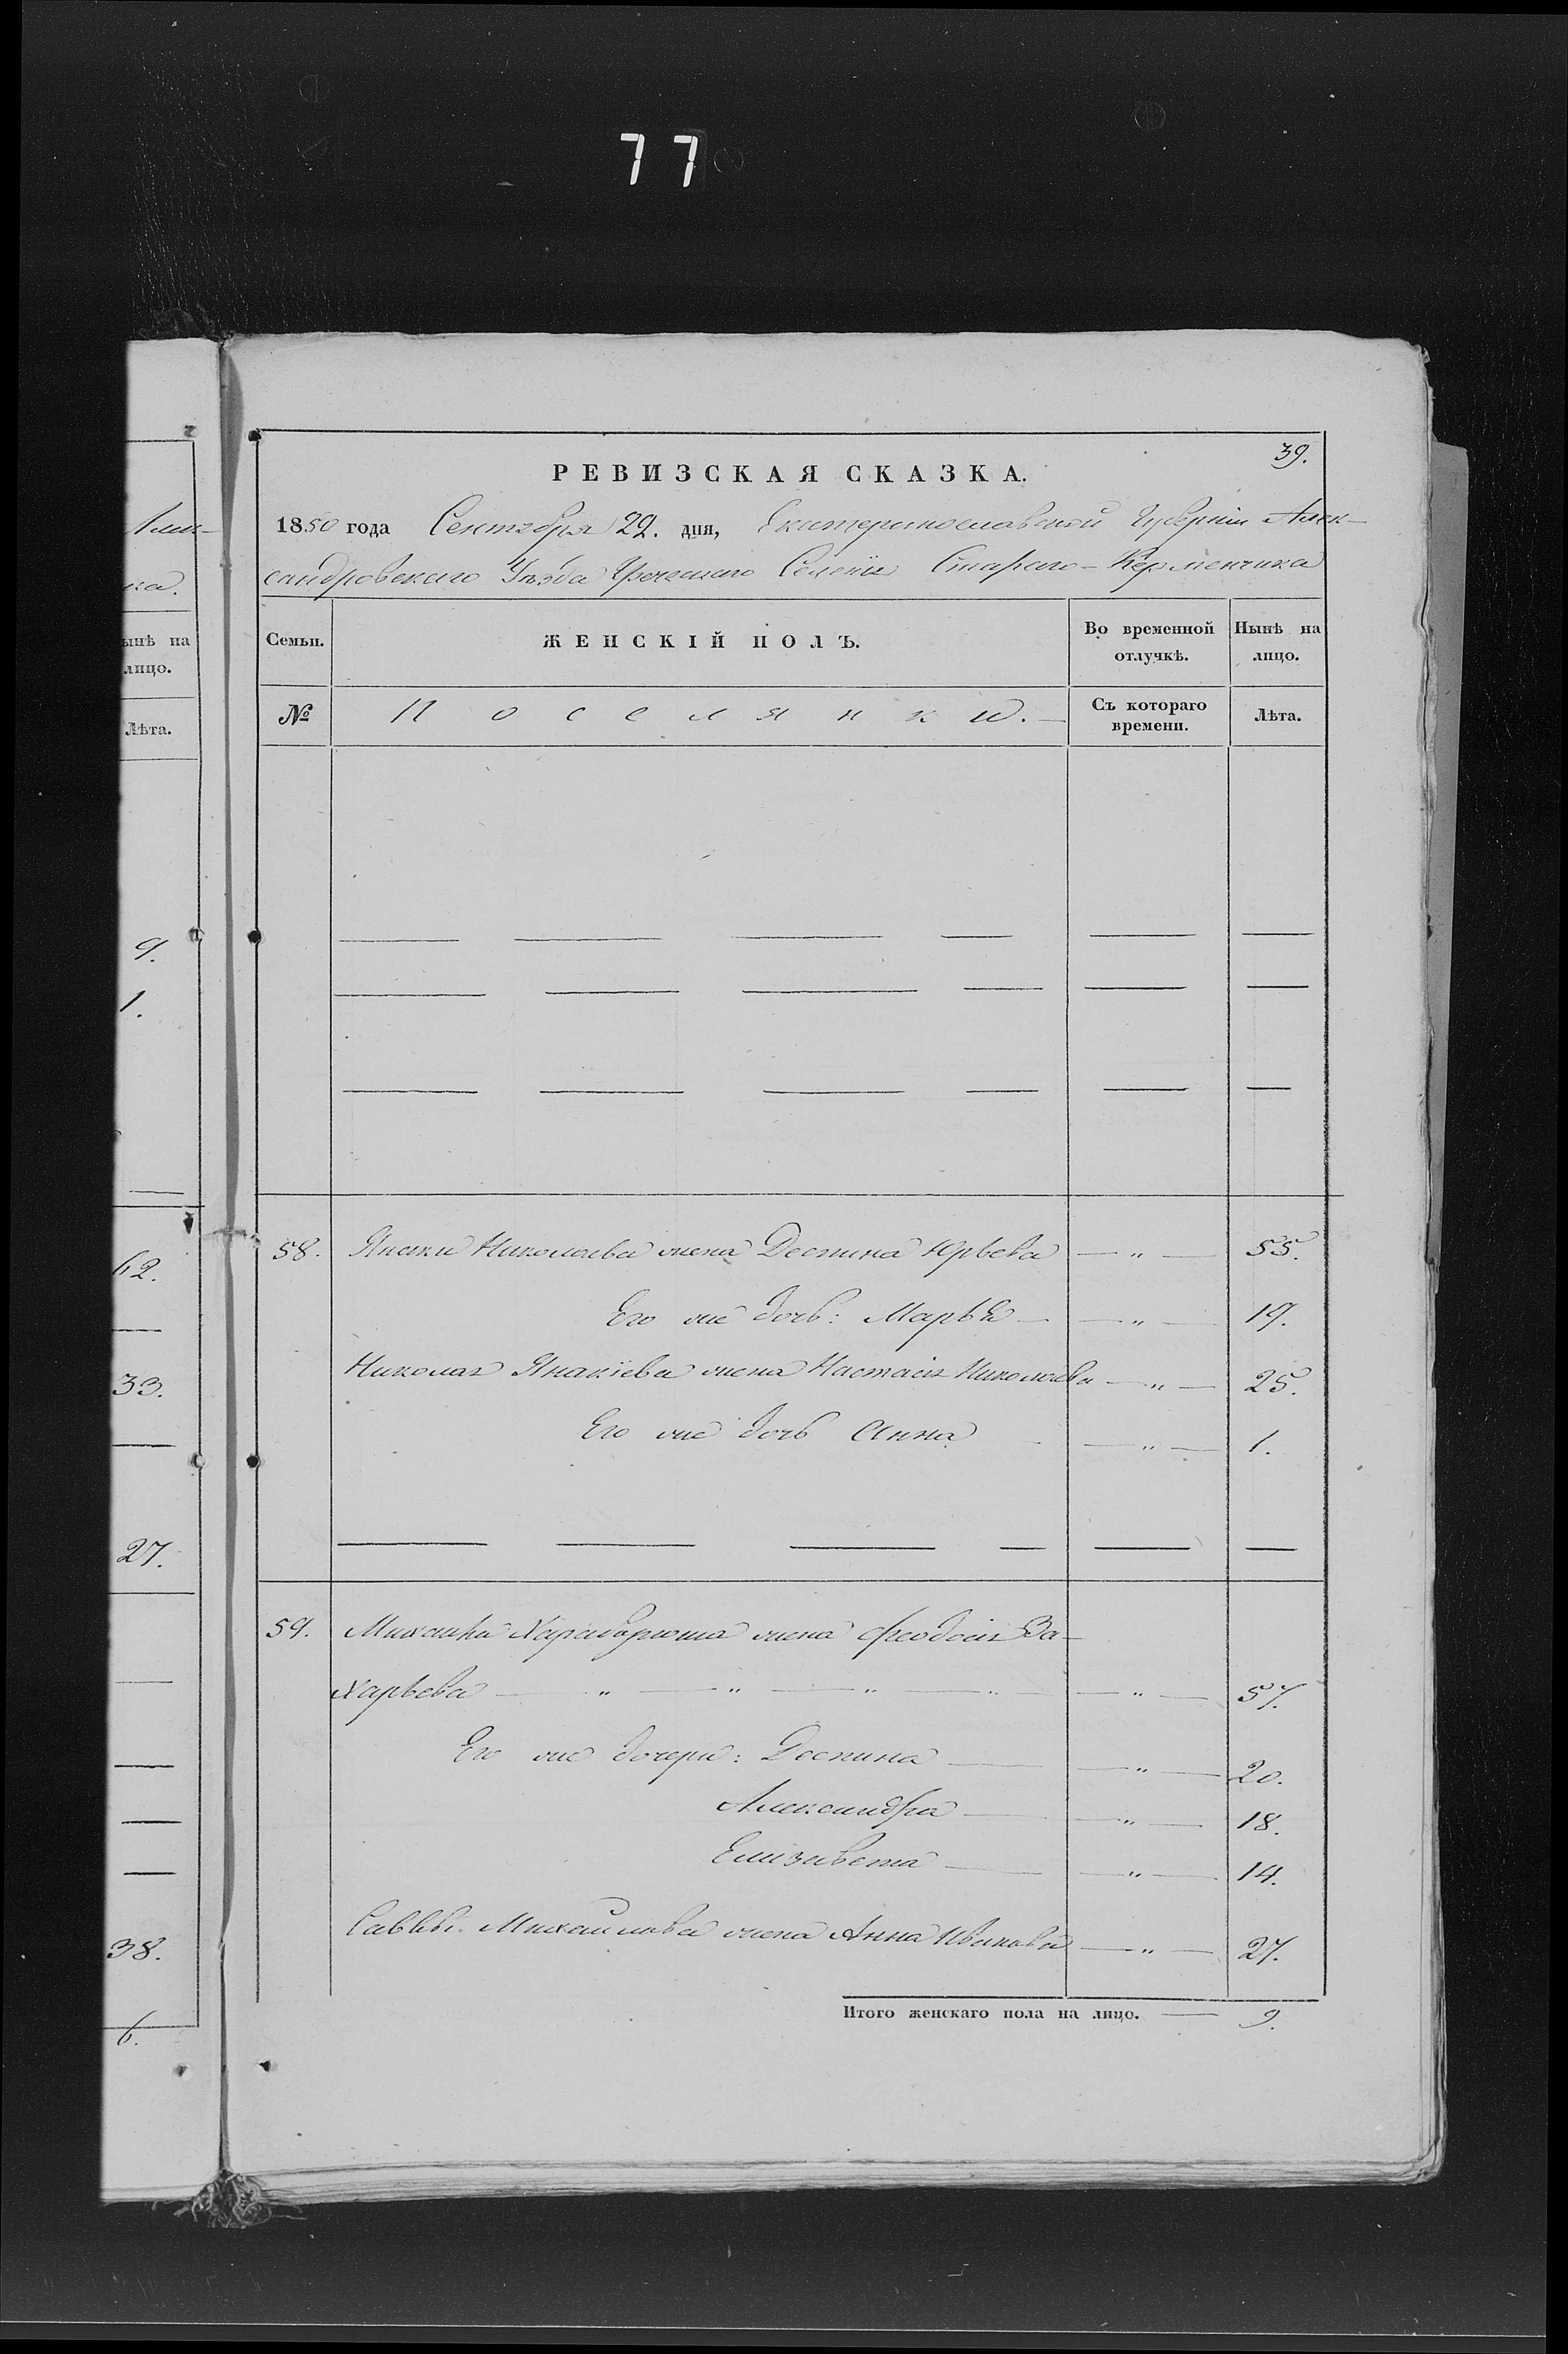 77
39.
РЕВИЗСКАЯ СКАЗКА.
1850 года Сентября 29. дня, Екатеринославской Губерніи Алек-
сандровскаго Уѣзда Греческаго Селенія Стараго-Керменчика
Семьи. ЖЕНСКІЙ ПОЛЪ. Во временной отлучкѣ. Нынѣ на лицо.
№ Поселянки. Съ котораго времени. Лѣта.
58. Янаки Николаева жена Деспина Юрьева — " — 55.
Его же дочь: Марья — " — 19.
Николая Янакіева жена Настасія Николаева — " — 25.
Его же дочь Анна — " — 1.
59. Михаила жена Феодосія За-
харьева — " — " — " — " — " — 57.
Его же дочери: Деспина — " — 20.
Александра — " — 18.
Елизавета — " — 14.
Саввы Михайлова жена Анна Иванова — " — 27.
Итого женскаго пола на лицо. — 9.
ынѣ на
лицо.
Лѣта.
9.
1.
62.
33.
27.
38.
6.